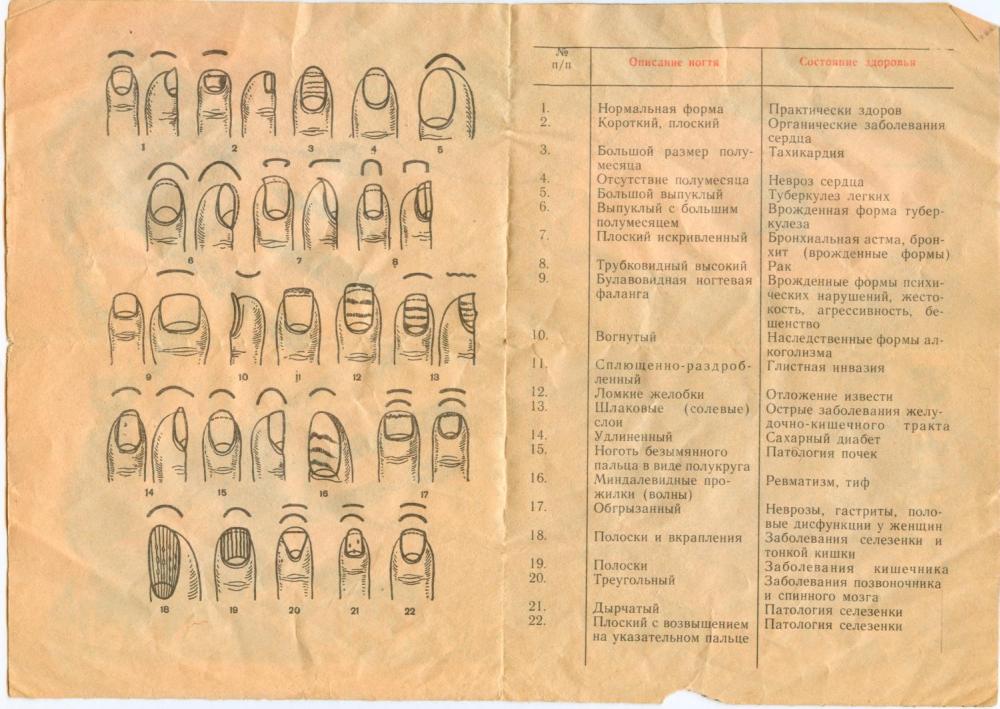 1 2 3 4 5
6 7 8
9 10 11 12 13
14 15 16 17
18 19 20 21 22
№ п/п Описание ногтя Состояние здоровья
1. Нормальная форма Практически здоров
2. Короткий, плоский Органические заболевания
сердца
3. Большой размер полу- Тахикардия
месяца
4. Отсутствие полумесяца Невроз сердца
5. Большой выпуклый Туберкулез легких
6. Выпуклый с большим Врожденная форма тубер-
полумесяцем кулеза
7. Плоский искривленный Бронхиальная астма, брон-
хит (врожденные формы)
8. Трубковидный высокий Рак
9. Булавовидная ногтевая Врожденные формы психи-
фаланга ческих нарушений, жесто-
кость, агрессивность, бе-
шенство
10. Вогнутый Наследственные формы ал-
коголизма
11. Сплющенно-раздроб- Глистная инвазия
ленный
12. Ломкие желобки Отложение извести
13. Шлаковые (солевые) Острые заболевания желу-
слои дочно-кишечного тракта
14. Удлиненный Сахарный диабет
15. Ноготь безымянного Патология почек
пальца в виде полукруга
16. Миндалевидные про- Ревматизм, тиф
жилки (волны)
17. Обгрызанный Неврозы, гастриты, поло-
вые дисфункции у женщин
18. Полоски и вкрапления Заболевания селезенки и
тонкой кишки
19. Полоски Заболевания кишечника
20. Треугольный Заболевания позвоночника
и спинного мозга
21. Дырчатый Патология селезенки
22. Плоский с возвышением Патология селезенки
на указательном пальце